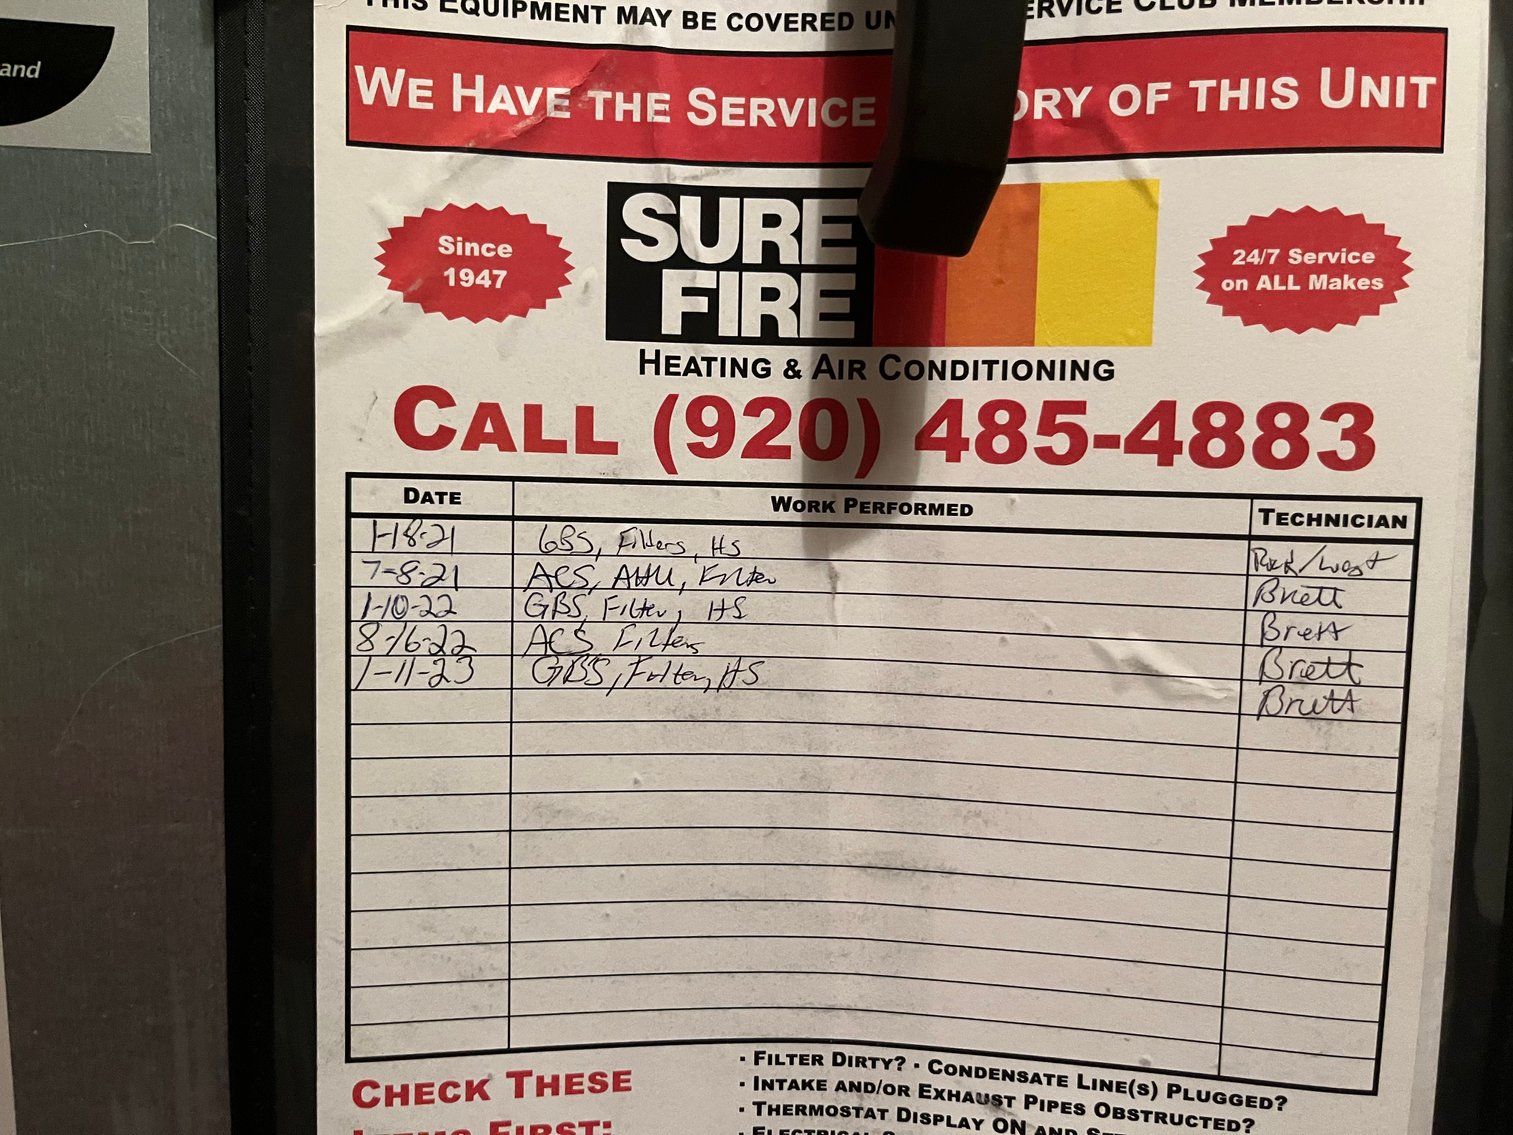 and
THIS EQUIPMENT MAY BE COVERED SERVICE CLUB MEMBERSHIP
WE HAVE THE SERVICE OF THIS UNIT
Since
1947
SURE
FIRE
24/7 Service
on ALL Makes
HEATING & AIR CONDITIONING
CALL (920) 485-4883
DATE WORK PERFORMED TECHNICIAN
1-18-21 GBS, Filters, HS
7-8-21 ACS, AHU, Filter Brett
1-10-22 GBS, Filter, HS Brett
8-16-22 ACS Filters Brett
1-11-23 GBS, Filter, HS Brett
CHECK THESE
ITEMS FIRST:
· FILTER DIRTY? · CONDENSATE LINE(S) PLUGGED?
· INTAKE AND/OR EXHAUST PIPES OBSTRUCTED?
· THERMOSTAT DISPLAY ON AND